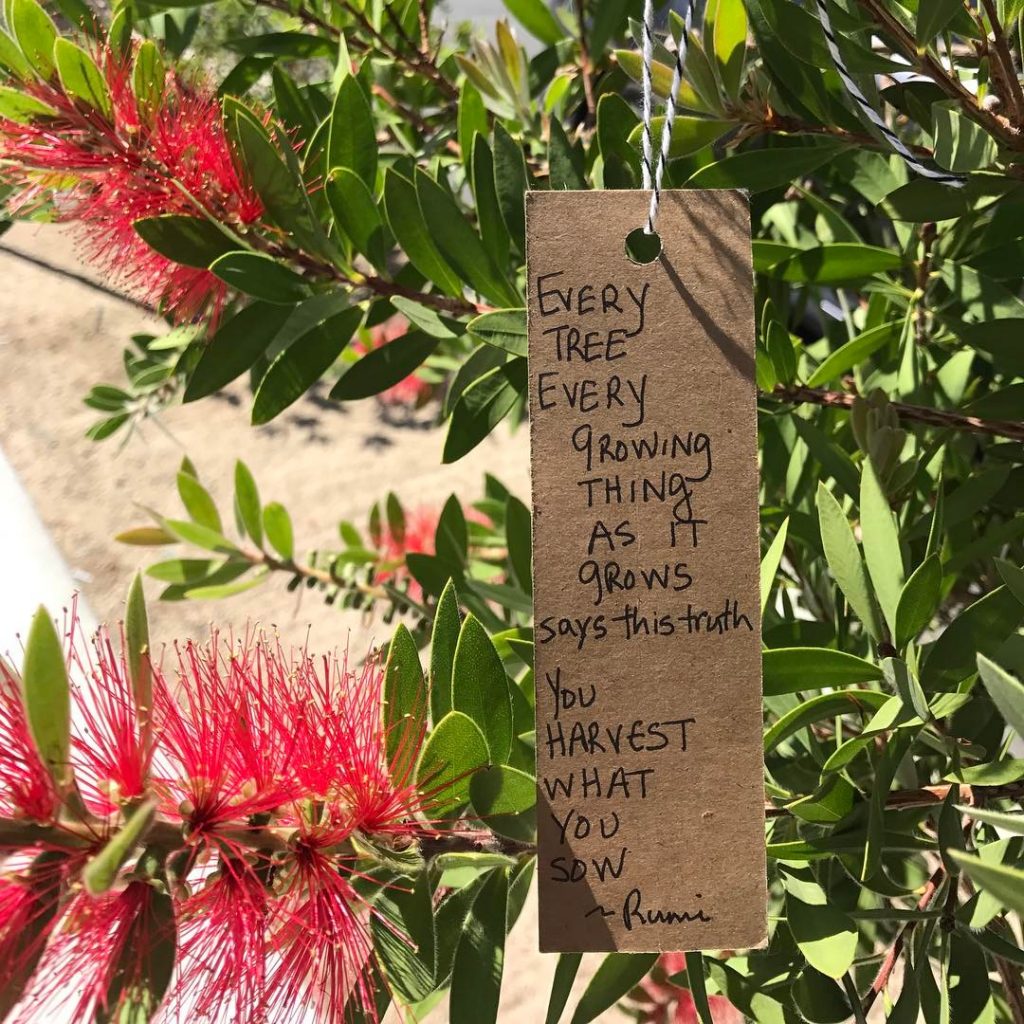 EVERY
TREE
EVERY
gROWINg
THINg
AS IT
gROWS
says this truth
You
HARVEST
WHAT
YOU
SOW
~Rumi